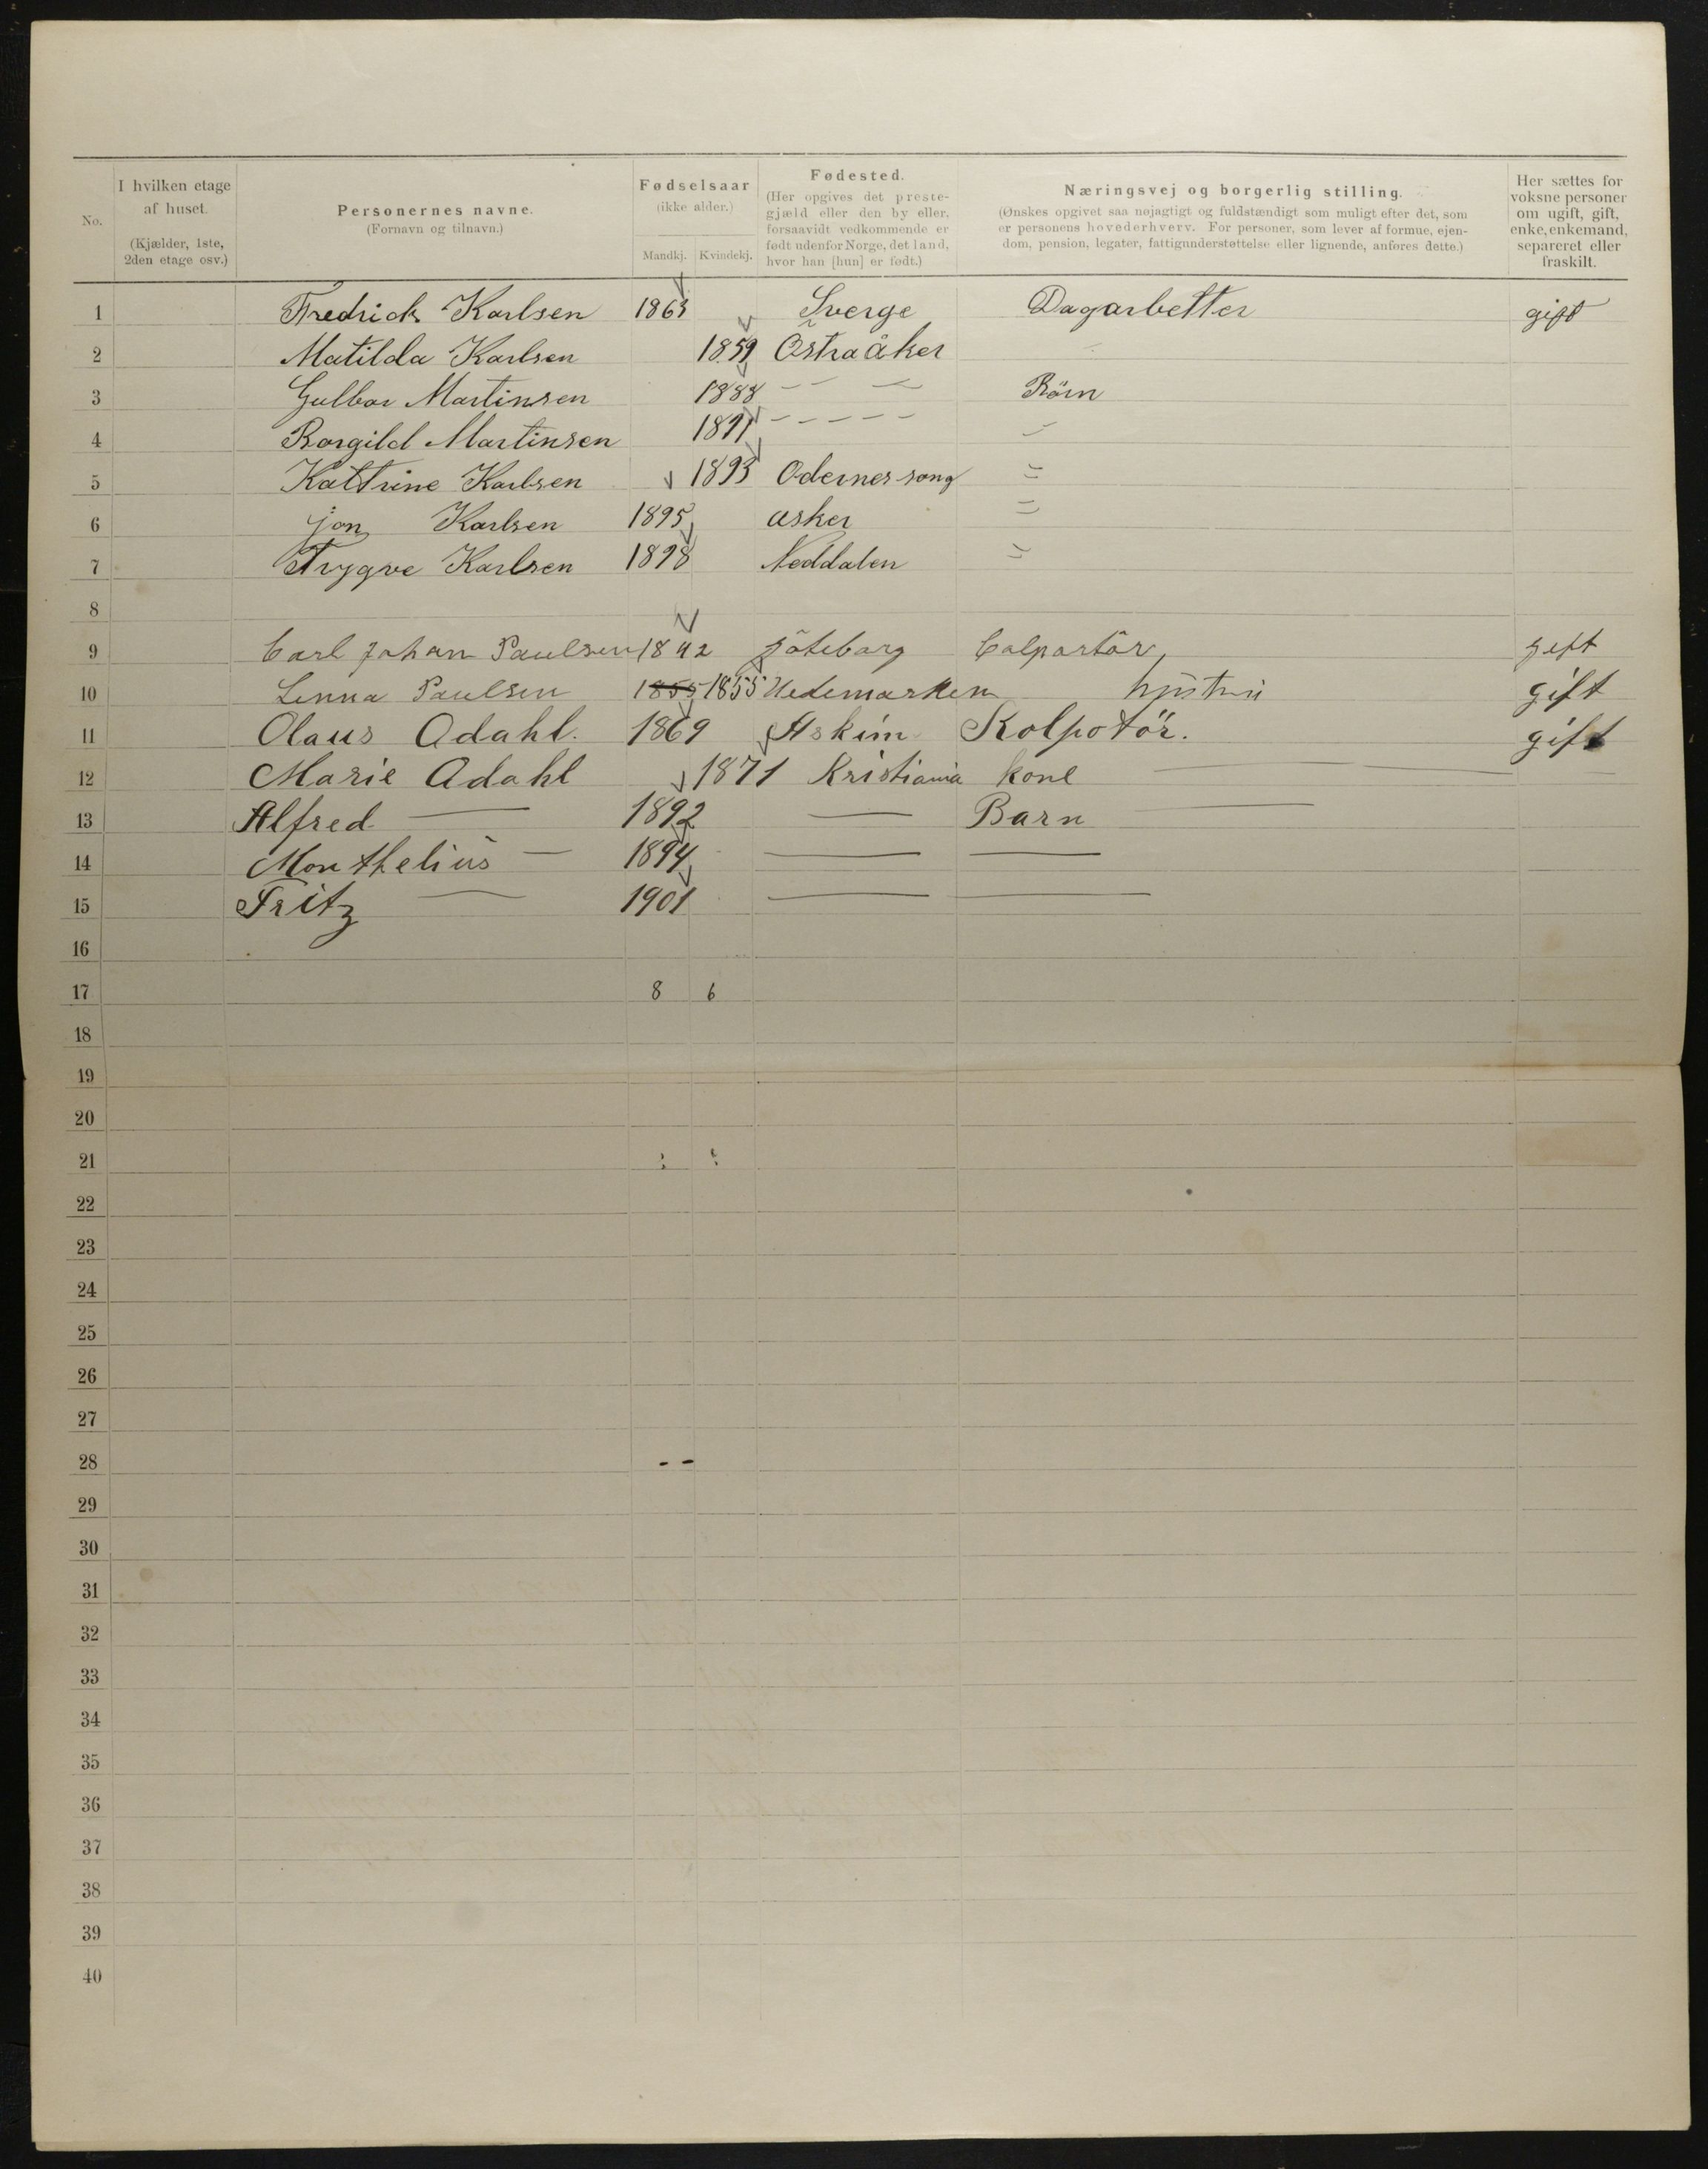 No.
I hvilken etage
af huset.
(Kjælder, 1ste,
2den etage osv.)
Personernes navne.
(Fornavn og tilnavn.)
Fødselsaar
(ikke alder.)
Mandkj. Kvindekj.
Fødested.
(Her opgives det preste-
gjæld eller den by eller,
forsaavidt vedkommende er
født udenfor Norge, det land,
hvor han [hun] er født.)
Næringsvej og borgerlig stilling.
(Ønskes opgivet saa nøjagtigt og fuldstændigt som muligt efter det, som
er personens hovederhverv. For personer, som lever af formue, ejen-
dom, pension, legater, fattigunderstøttelse eller lignende, anføres dette.)
Her sættes for
voksne personer
om ugift, gift,
enke, enkemand,
separeret eller
fraskilt.
1 Fredrick Karlsen 1863 Sverge Dagarbetter gift
2 Matilda Karlsen 1859 Östra åker
3 Gulbor Martinsen 1888 — — Börn
4 Borgild Martinsen 1891 - - - - -
5 Kattrine Karlsen 1893 Odernes song
6 Jon Karlsen 1895 asker
7 Trygve Karlsen 1898 Neddalen
8
9 Carl Johan Paulsen 1842 göteborg Colportör, gift
10 Linna Paulsen 1855 1855 Hedemarken hüstru gift
11 Olaus Adahl. 1869 Askim Kolpotör. gift
12 Marie Adahl 1871 Kristiania kone —
13 Alfred — 1892 — Barn —
14 Monthelius — 1894 — —
15 Fritz — 1901 — —
16
17 8 6
18
19
20
21
22
23
24
25
26
27
28 - -
29
30
31
32
33
34
35
36
37
38
39
40